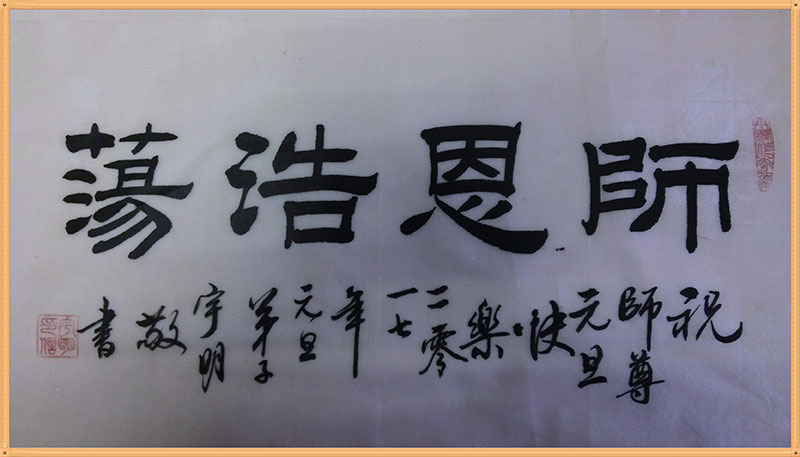 師恩浩蕩
祝
師尊
元旦
快樂
二零
一七
年
元旦
弟子
宇明
敬
書